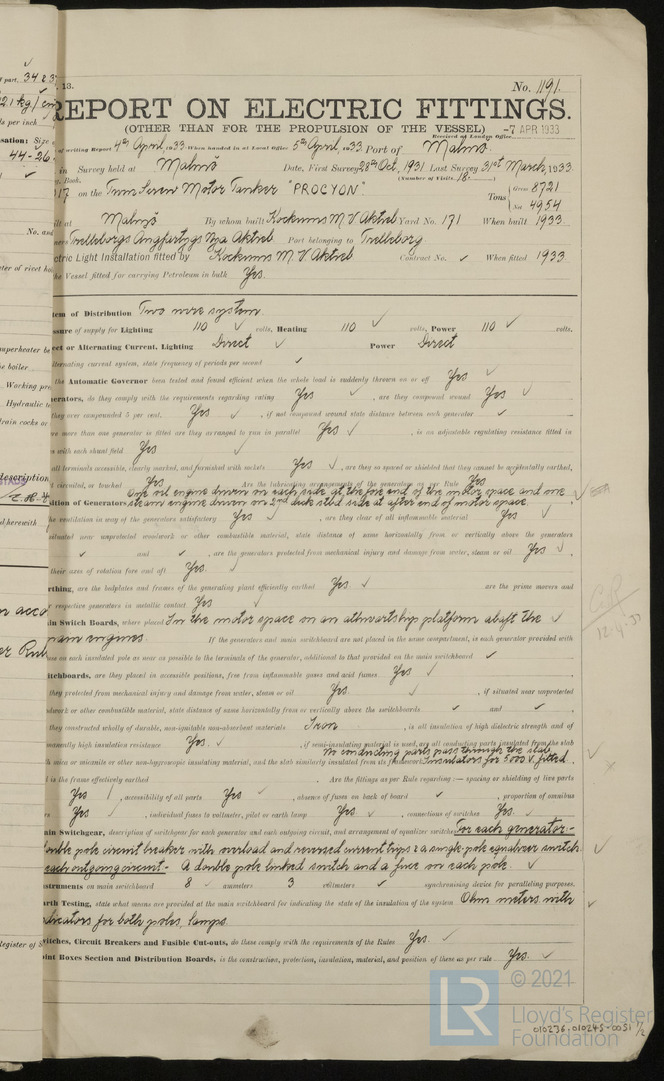 13.
No. 1191.
REPORT ON ELECTRIC FITTINGS.
(OTHER THAN FOR THE PROPULSION OF THE VESSEL)
-7 APR 1933
Received at London Office
of writing Report 4th April, 1933. When handed in at Local Office 5th April, 1933 Port of Malmö
in Survey held at Malmö Date, First Survey 28th Oct, 1931. Last Survey 31st March, 1933.
Book. (Number of Visits. 18)
017 on the Twin Screw Motor Tanker "PROCYON" Tons Gross 8721
Net 4954
ilt at Malmö By whom built Kockums M. V. Aktieb Yard No. 171 When built 1933
ners Trelleborgs Ångfartygs Nya Aktieb Port belonging to Trelleborg
ctric Light Installation fitted by Kockums M. V Aktieb Contract No. ✓ When fitted 1933
he Vessel fitted for carrying Petroleum in bulk Yes.
tem of Distribution Two wire system.
sure of supply for Lighting 110 ✓ volts, Heating 110 ✓ volts, Power 110 ✓ volts.
ect or Alternating Current, Lighting Direct ✓ Power Direct
lternating current system, state frequency of periods per second ✓
the Automatic Governor been tested and found efficient when the whole load is suddenly thrown on or off Yes ✓
erators, do they comply with the requirements regarding rating Yes ✓, are they compound wound Yes ✓
they over compounded 5 per cent. Yes ✓, if not compound wound state distance between each generator ✓
re more than one generator is fitted are they arranged to run in parallel Yes ✓, is an adjustable regulating resistance fitted in
s with each shunt field Yes ✓
all terminals accessible, clearly marked, and furnished with sockets Yes ✓, are they so spaced or shielded that they cannot be accidentally earthed,
t circuited, or touched Yes Are the lubricating arrangements of the generators as per Rule Yes
ition of Generators, One oil engine driven on each side at the fore end of the motor space and one
steam engine driven on 2nd deck stbd side at after end of motor space.
he ventilation in way of the generators satisfactory Yes ✓, are they clear of all inflammable material Yes ✓
ituated near unprotected woodwork or other combustible material, state distance of same horizontally from or vertically above the generators
✓ and ✓, are the generators protected from mechanical injury and damage from water, steam or oil Yes ✓
their axes of rotation fore and aft Yes. ✓
rthing, are the bedplates and frames of the generating plant efficiently earthed Yes ✓ are the prime movers and
r respective generators in metallic contact Yes ✓
in Switch Boards, where placed In the motor space on an athwartship platform abaft the ✓
main engines. If the generators and main switchboard are not placed in the same compartment, is each generator provided with
use on each insulated pole as near as possible to the terminals of the generator, additional to that provided on the main switchboard ✓
itchboards, are they placed in accessible positions, free from inflammable gases and acid fumes Yes ✓
they protected from mechanical injury and damage from water, steam or oil Yes. ✓, if situated near unprotected
dwork or other combustible material, state distance of same horizontally from or vertically above the switchboards ✓ and ✓
they constructed wholly of durable, non-ignitable non-absorbent materials Iron, is all insulation of high dielectric strength and of
manently high insulation resistance Yes. ✓, if semi-insulating material is used, are all conducting parts insulated from the slab
No conducting parts pass through the slab.
h mica or micanite or other non-hygroscopic insulating material, and the slab similarly insulated from its framework Insulators for 5000 V. fitted.
d is the frame effectively earthed Are the fittings as per Rule regarding:— spacing or shielding of live parts
Yes, accessibility of all parts Yes ✓, absence of fuses on back of board ✓, proportion of omnibus
rs Yes ✓, individual fuses to voltmeter, pilot or earth lamp Yes ✓, connections of switches Yes ✓
ain Switchgear, description of switchgear for each generator and each outgoing circuit, and arrangement of equalizer switches For each generator:-
double pole circuit breaker with overload and reversed current trips & a single pole equalizer switch.
each outgoing circuit:- A double pole linked switch and a fuse on each pole. ✓
struments on main switchboard 8 ✓ ammeters 3 voltmeters ✓ synchronising device for paralleling purposes.
arth Testing, state what means are provided at the main switchboard for indicating the state of the insulation of the system Ohm meters with
indicators for both poles, lamps.
witches, Circuit Breakers and Fusible Cut-outs, do these comply with the requirements of the Rules Yes. ✓
oint Boxes Section and Distribution Boards, is the construction, protection, insulation, material, and position of these as per rule Yes. ✓
12-4-33
LR
© 2021
Lloyd's Register
Foundation
010236-010245-0051 1/2